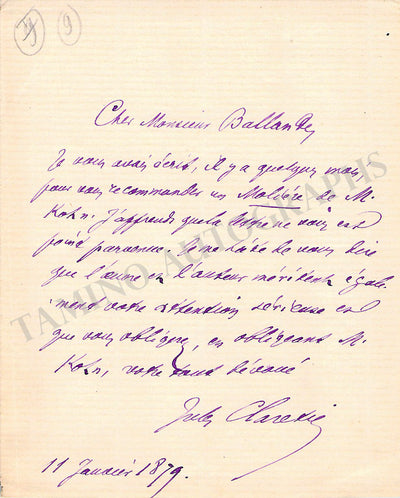 9
Cher Monsieur Ballande,
Je vous avais écrit, il y a quelques mois,
pour vous recommander un Molière de M.
Kohn. J'apprends que la lettre ne vous est
point parvenue. de vous dire
que l'œuvre et l'auteur méritent égale-
ment votre attention sérieuse et
que vous obligerez, en obligeant M.
Kohn, votre tout dévoué
Jules Claretie
11 Janvier 1879.
TAMINO AUTOGRAPHS